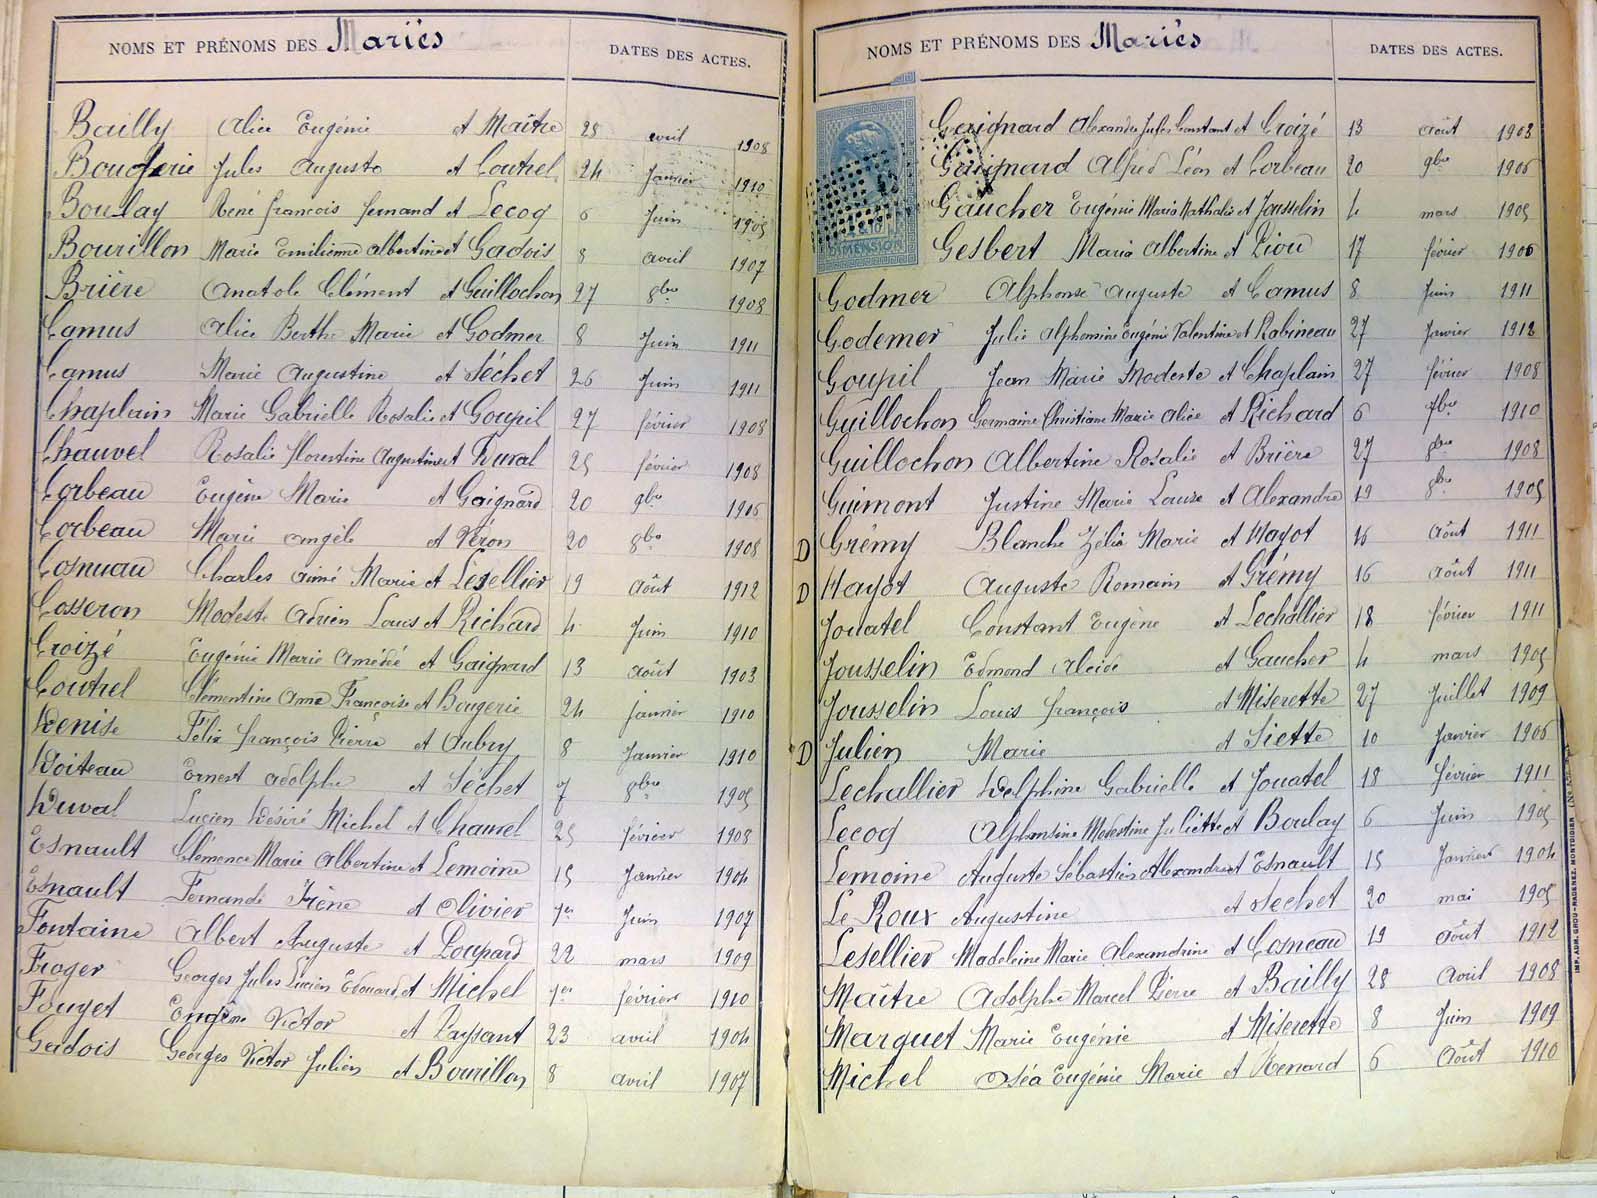 NOMS ET PRÉNOMS DES Mariés DATES DES ACTES.
Bailly Alice Eugénie et Maître 28 avril 1908
Bougerie Jules Auguste et Coutrel 24 Janvier 1910
Boulay René françois fernand et Lecoq 6 Juin 1905
Bourillon Marie Emilienne Albertine et Gadois 8 avril 1907
Brière Anatole Clément et Guillochon 27 8bre 1908
Camus Alice Berthe Marie et Godmer 8 Juin 1911
Camus Marie Augustine et Séchet 26 Juin 1911
Chaplain Marie Gabrielle Rosalie et Goupil 27 février 1908
Chauvel Rosalie florentine Augustine et Duval 25 février 1908
Corbeau Eugène Marie et Gaignard 20 9bre 1906
Corbeau Marie Angèle et Véron 20 8bre 1908
Cosnuau Charles Aimé Marie et Lesellier 19 Août 1912
Cosseron Modeste Adrien Louis et Richard 4 Juin 1910
Croizé Eugénie Marie Amédée et Gaignard 13 Août 1903
Coutrel Clémentine Anna Françoise et Bougerie 24 janvier 1910
Denise Félix françois Pierre et Aubry 8 Janvier 1910
Doiteau Ernest Adolphe et Séchet 7 8bre 1905
Duval Lucien Désiré Michel et Chauvel 25 février 1908
Esnault Clémence Marie Albertine et Lemoine 15 Janvier 1904
Esnault Fernande Irène et Olivier 1er Juin 1907
Fontaine Albert Auguste et Poupard 22 mars 1909
Froger Georges Jules Lucien Edouard et Michel 1er février 1910
Fouget Eugène Victor et Paysant 23 avril 1904
Gadois Georges Victor Julien et Bourillon 8 avril 1907
NOMS ET PRÉNOMS DES Mariés DATES DES ACTES.
Gaignard Alexandre Jules Constant et Croizé 13 Août 1903
Gaignard Alfred Léon et Corbeau 20 9bre 1906
Gaucher Eugénie Maria Nathalie et Jousselin 4 mars 1905
Gesbert Maria Albertine et Piou 17 février 1906
DIMENSION
Godmer Alphonse Auguste et Camus 8 Juin 1911
Godemer Julie Alphonsine Eugénie Valentine et Rabineau 27 Janvier 1912
Goupil Jean Marie Modeste et Chaplain 27 février 1908
Guillochon Germaine Christiane Marie Alice et Richard 6 7bre 1910
Guillochon Albertine Rosalie et Brière 27 8bre 1908
Guimont Justine Marie Louise et Alexandre 19 8bre 1905
D Grémy Blanche Zélia Marie et Hayot 16 Août 1911
D Hayot Auguste Romain et Grémy 16 Août 1911
Jouatel Constant Eugène et Lechallier 18 février 1911
Jousselin Edmond Alcide et Gaucher 4 mars 1905
Jousselin Louis françois et Miserette 27 Juillet 1909
D Julien Marie et Siette 10 Janvier 1906
Lechallier Delphine Gabrielle et Jouatel 18 février 1911
Lecoq Alphonsine Modestine Juliette et Boulay 6 Juin 1905
Lemoine Auguste Sébastien Alexandre et Esnault 15 Janvier 1904
Le Roux Augustine et Sechet 20 mai 1905
Lesellier Madeleine Marie Alexandrine et Cosneau 19 Août 1912
Maître Adolphe Marcel Pierre et Bailly 28 Avril 1908
Marquet Marie Eugénie et Miserette 8 Juin 1909
Michel Oséa Eugénie Marie et Renard 6 Août 1910